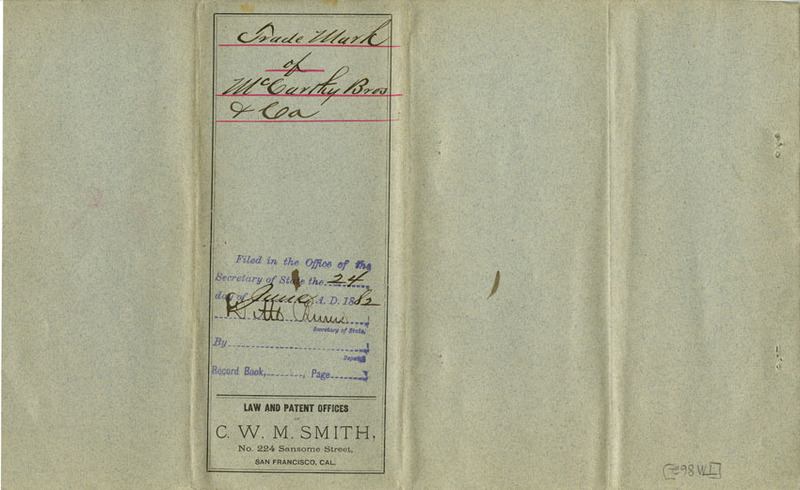 Trade Mark
of
McCarthy Bros
& Co
Filed in the Office of the
Secretary of State the 24
day of June A. D. 1882
Secretary of State,
By
Deputy
Record Book, Page
LAW AND PATENT OFFICES
C. W. M. SMITH,
No. 224 Sansome Street,
SAN FRANCISCO, CAL.